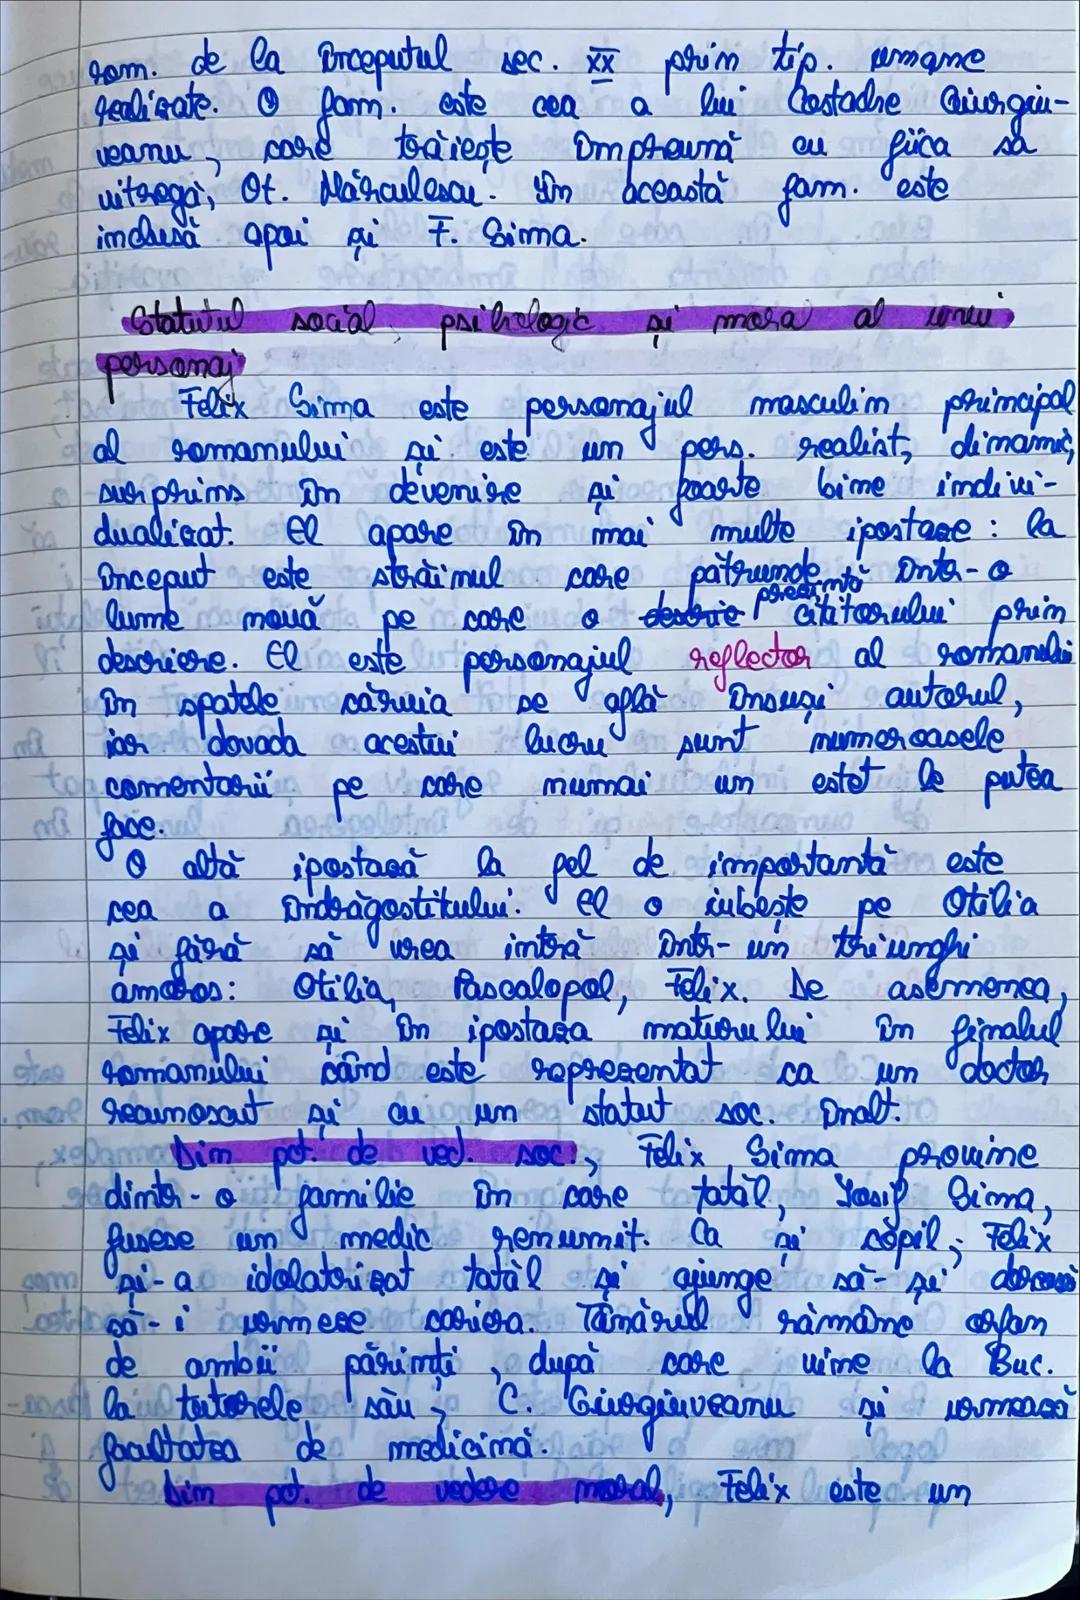 rom. de la începutul sec. XX prin tip. umane
realizate. O fam. este cea a lui Costache Giurgiu-
veanu, care trăiește împreună cu fiica sa
vitregă, Ot. Mărculescu. În această fam. este
inclusă apoi și F. Sima.
Statutul social, psihologic și moral al unui
personaj
Felix Sima este personajul masculin principal
al romanului și este un pers. realist, dinamic,
surprins în devenire și foarte bine indivi-
dualizat. El apare în mai multe ipostaze: la
început este străinul care pătrunde într-o
lume nouă pe care o descrie prezintă cititorului prin
descriere. El este personajul reflector al romanului
în spatele căruia se află însuși autorul,
iar dovada acestui lucru sunt numeroasele
comentarii pe care numai un estet le putea
face.
O altă ipostază la fel de importantă este
cea a îndrăgostitului. El o iubește pe Otilia
și fără să vrea intră într-un triunghi
amoros: Otilia, Pascalopol, Felix. De asemenea,
Felix apare și în ipostaza maturului în finalul
romanului când este reprezentat ca un doctor
recunoscut și cu un statut soc. înalt.
Din pct. de ved. soc., Felix Sima provine
dintr-o familie în care tatăl, Iosif Sima,
fusese un medic renumit. Ca și copil, Felix
și-a idolatorizat tatăl și ajunge să-și dorească
să-i urmeze cariera. Tânărul rămâne orfan
de ambii părinți, după care vine la Buc.
la tutorele său, C. Giurgiuveanu și urmează
facultatea de medicină.
Din pct. de vedere moral, Felix este un